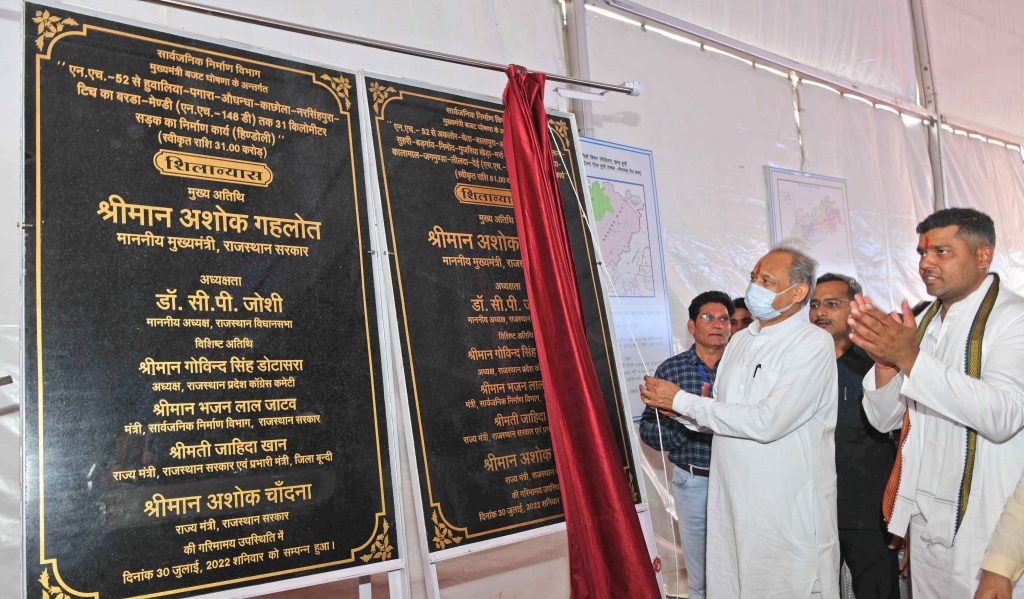 सार्वजनिक निर्माण विभाग
मुख्यमंत्री बजट घोषणा के अन्तर्गत
"एन.एच.-52 से हुवालिया-पगारा-औधन्धा-काछोला-नरसिंहपुरा-
टिच का बरडा-मेण्डी (एन.एच.-148 डी) तक 31 किलोमीटर
सड़क का निर्माण कार्य (हिण्डोली)"
(स्वीकृत राशि 31.00 करोड़)
शिलान्यास
मुख्य अतिथि
श्रीमान अशोक गहलोत
माननीय मुख्यमंत्री, राजस्थान सरकार
अध्यक्षता
डॉ. सी.पी. जोशी
माननीय अध्यक्ष, राजस्थान विधानसभा
विशिष्ट अतिथि
श्रीमान गोविन्द सिंह डोटासरा
अध्यक्ष, राजस्थान प्रदेश काँग्रेस कमेटी
श्रीमान भजन लाल जाटव
मंत्री, सार्वजनिक निर्माण विभाग, राजस्थान सरकार
श्रीमती जाहिदा खान
राज्य मंत्री, राजस्थान सरकार एवं प्रभारी मंत्री, जिला बून्दी
श्रीमान अशोक चाँदना
राज्य मंत्री, राजस्थान सरकार
की गरिमामय उपस्थिति में
दिनांक 30 जुलाई, 2022 शनिवार को सम्पन्न हुआ।
सार्वजनिक निर्माण
मुख्यमंत्री बजट घोषणा के
"एन.एच.-52 से
(स्वीकृत राशि 61.00
शिलान्यास
मुख्य अतिथि
श्रीमान अशोक
माननीय मुख्यमंत्री,
अध्यक्षता
डॉ. सी.पी.
माननीय अध्यक्ष, राजस्थान
विशिष्ट अतिथि
श्रीमान गोविन्द सिंह
अध्यक्ष, राजस्थान प्रदेश
श्रीमान भजन लाल
मंत्री, सार्वजनिक निर्माण विभाग,
श्रीमती जाहिदा
राज्य मंत्री, राजस्थान सरकार एवं
श्रीमान अशोक
राज्य मंत्री, राजस्थान
की गरिमामय उपस्थिति
दिनांक 30 जुलाई, 2022 शनिवार